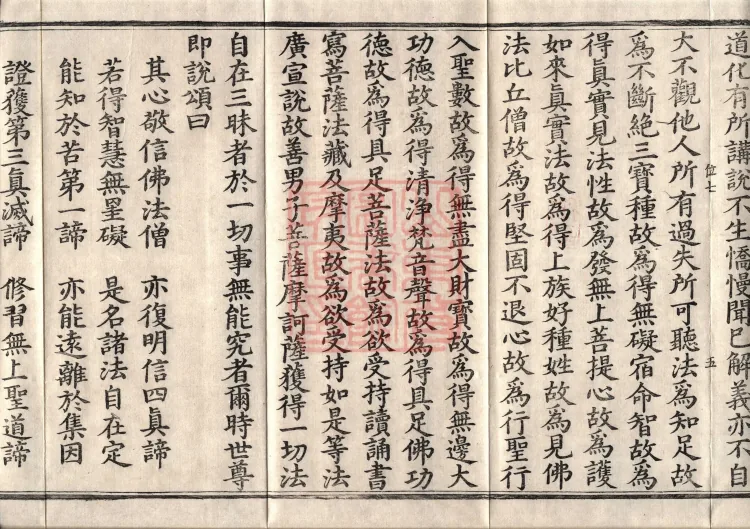 道化有所講說不生憍慢聞已解義亦不自
大不觀他人所有過失所可聽法爲知足故
位七
五
爲不斷絶三寶種故爲得無礙宿命智故爲
得眞實見法性故爲發無上菩提心故爲護
如來眞實法故爲得上族好種姓故爲見佛
法比丘僧故爲得堅固不退心故爲行聖行
入聖數故爲得無盡大財寶故爲得無邊大
功德故爲得清淨梵音聲故爲得具足佛功
德故爲得具足菩薩法故爲欲受持讀誦書
寫菩薩法藏及摩夷故爲欲受持如是等法
廣宣說故善男子菩薩摩訶薩獲得一切法
自在三昧者於一切事無能究者爾時世尊
即說頌曰
其心敬信佛法僧 亦復明信四眞諦
若得智慧無罣礙 是名諸法自在定
能知於苦第一諦 亦能遠離於集因
證獲第三眞滅諦 修習無上聖道諦